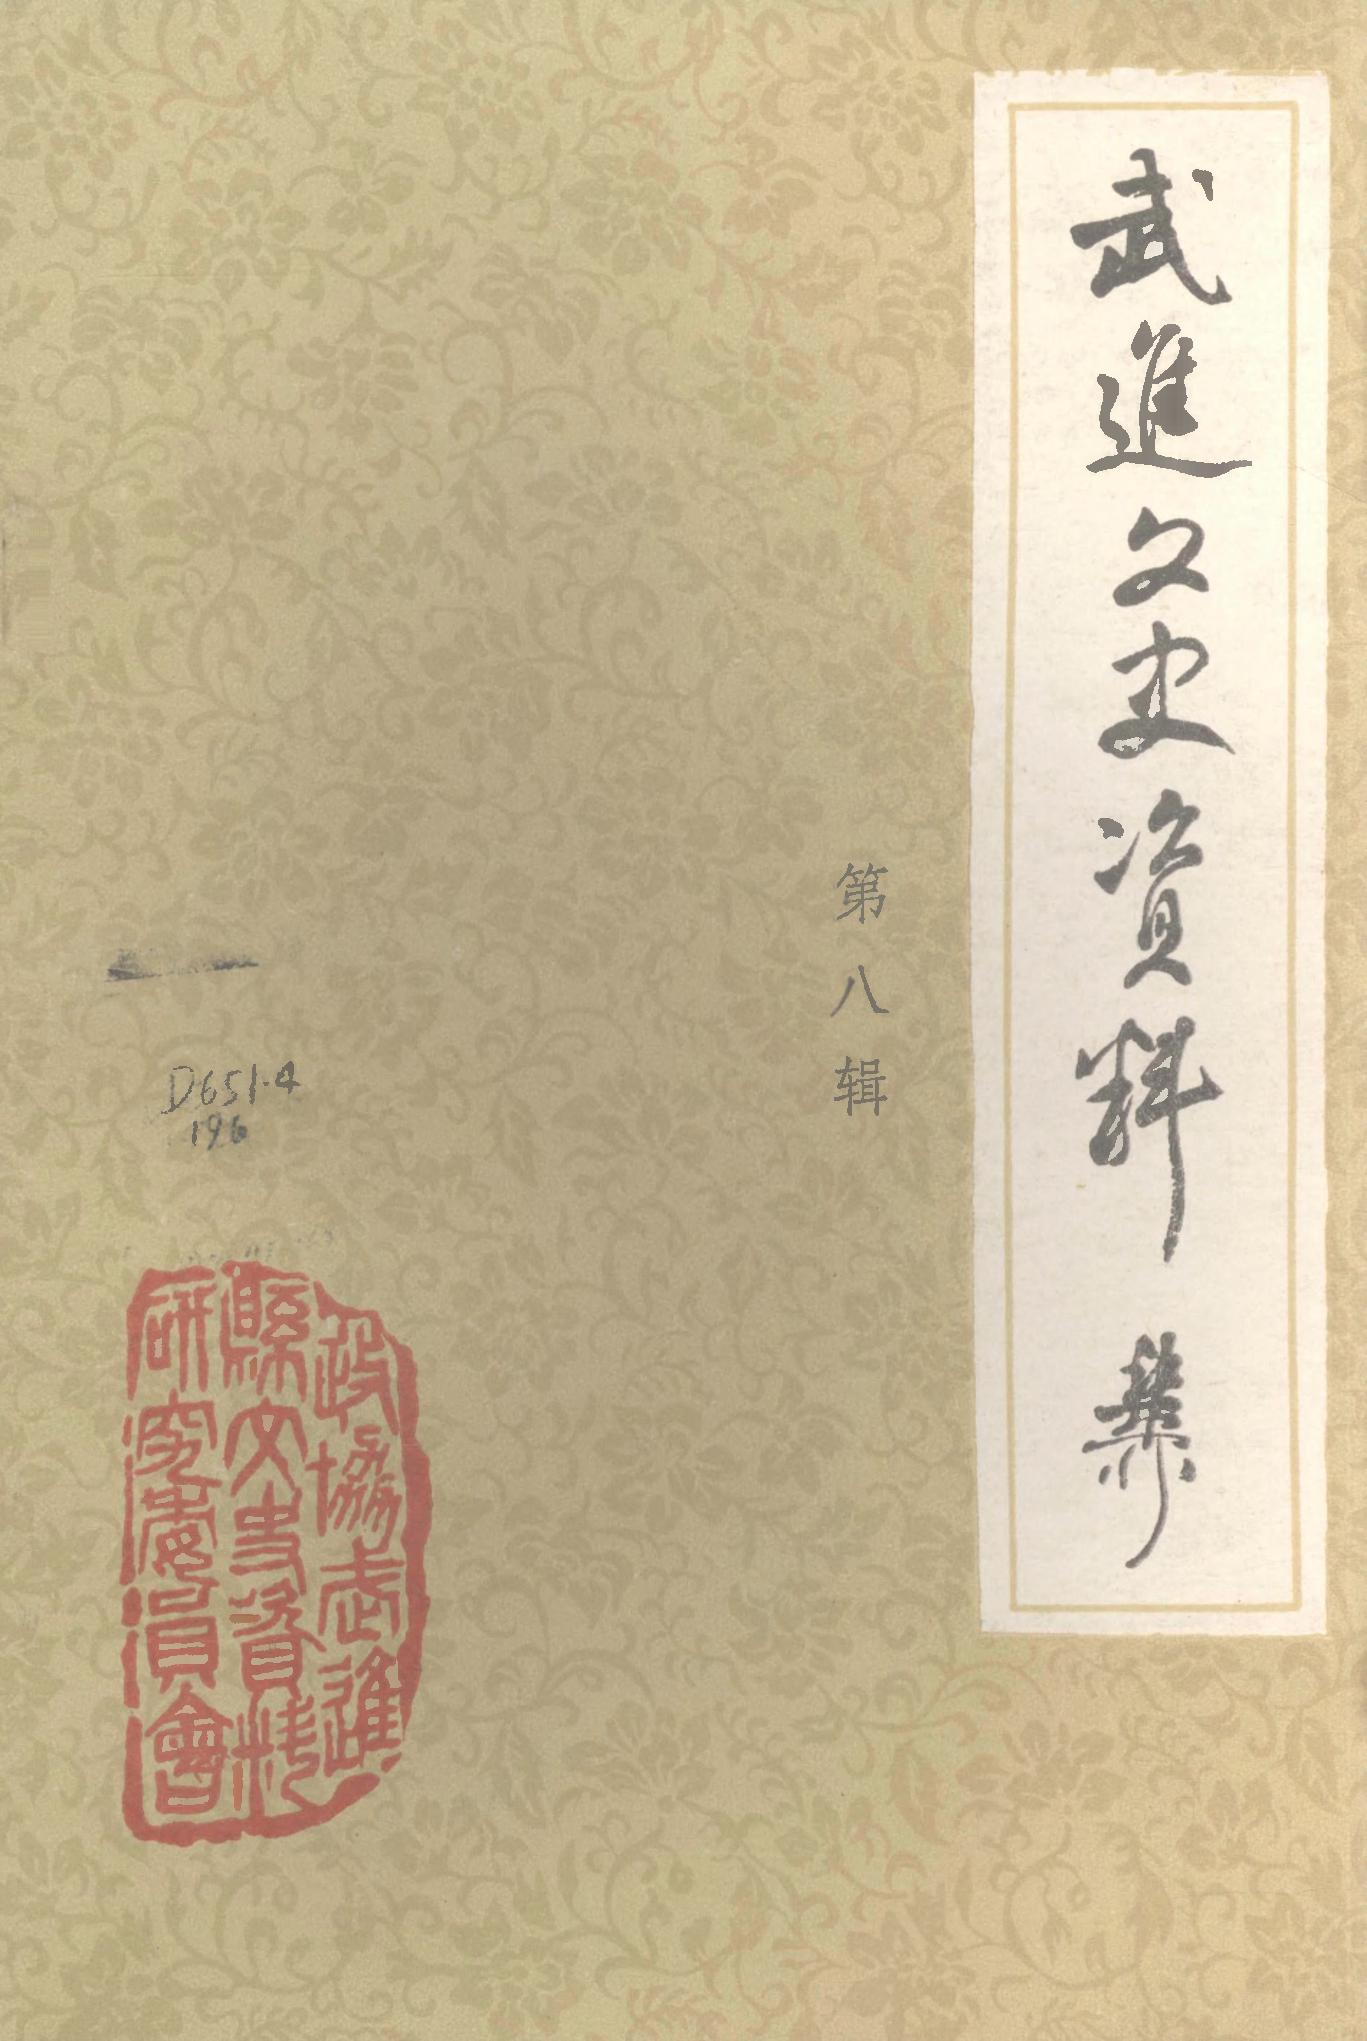 武進文史資料
第八辑
D651.4
196
政協武進
縣文史資料
研究委員會